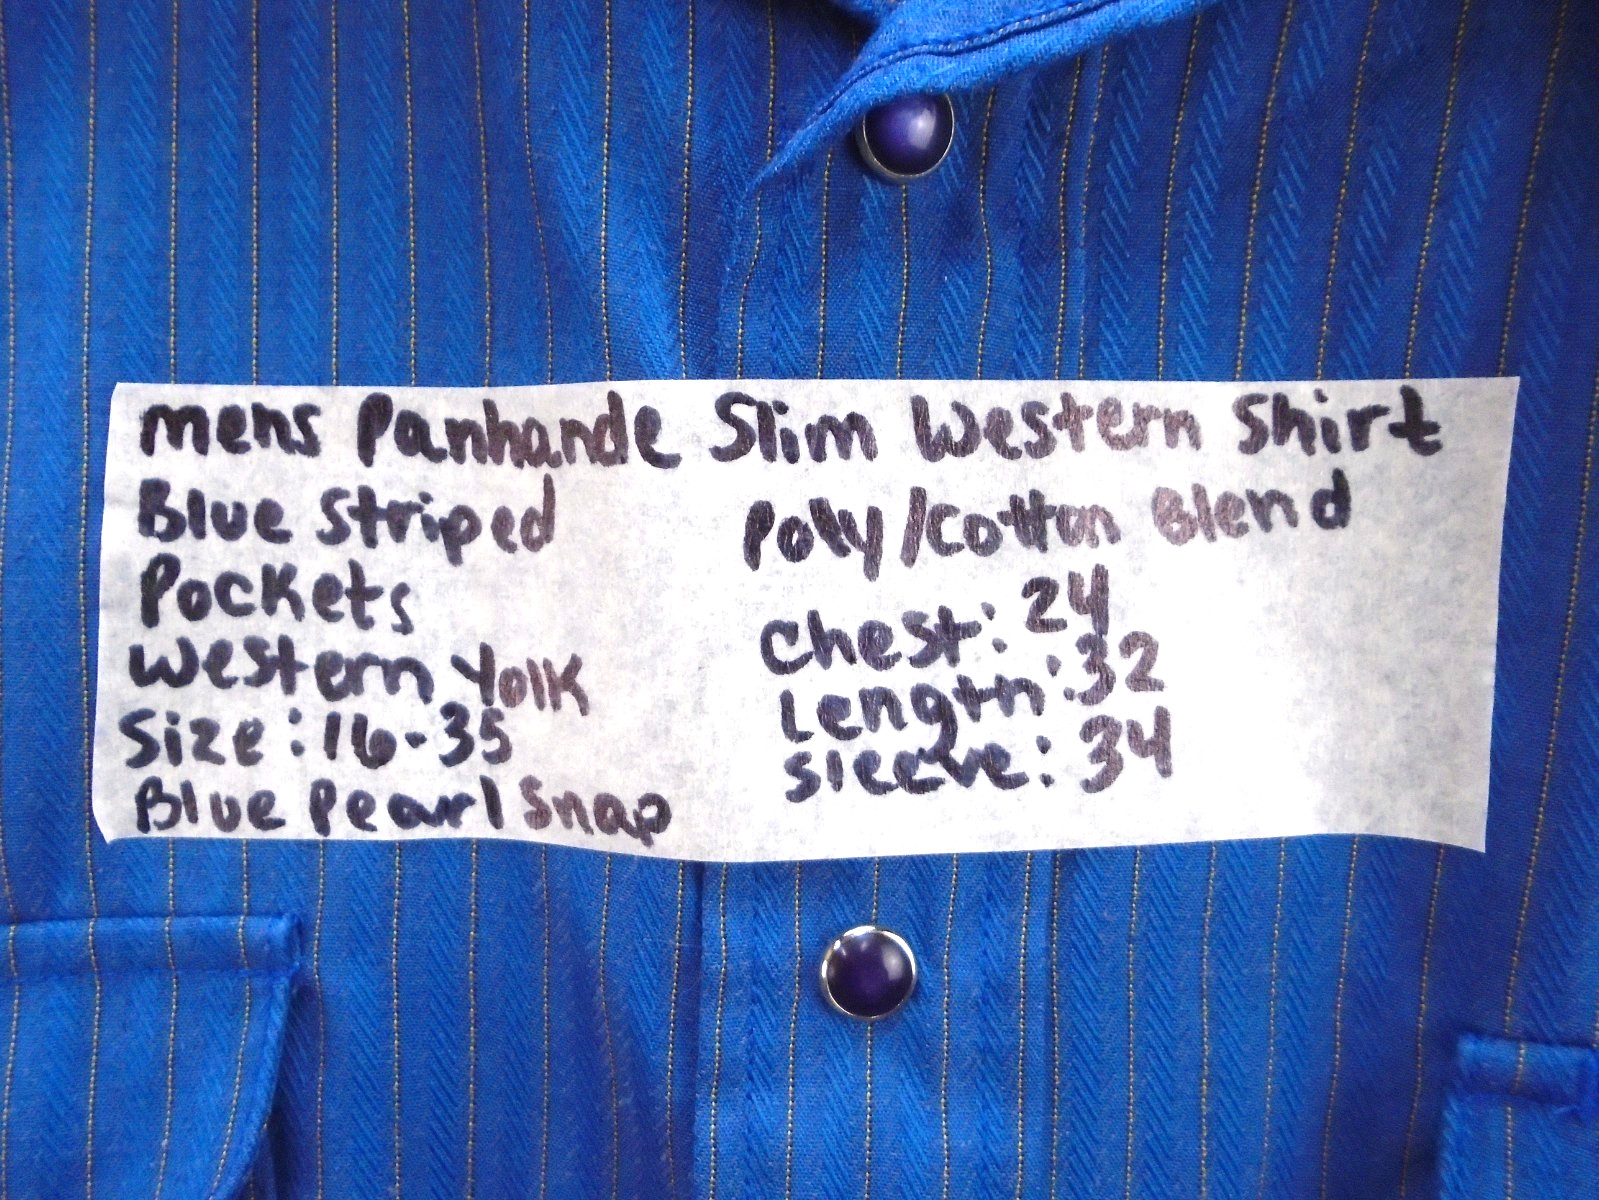 mens Panhande Slim Western Shirt
Blue Striped
Pockets
Western Yolk
Size: 16-35
Blue Pearl Snap
Poly/Cotton Blend
Chest: 24
Length: 32
Sleeve: 34